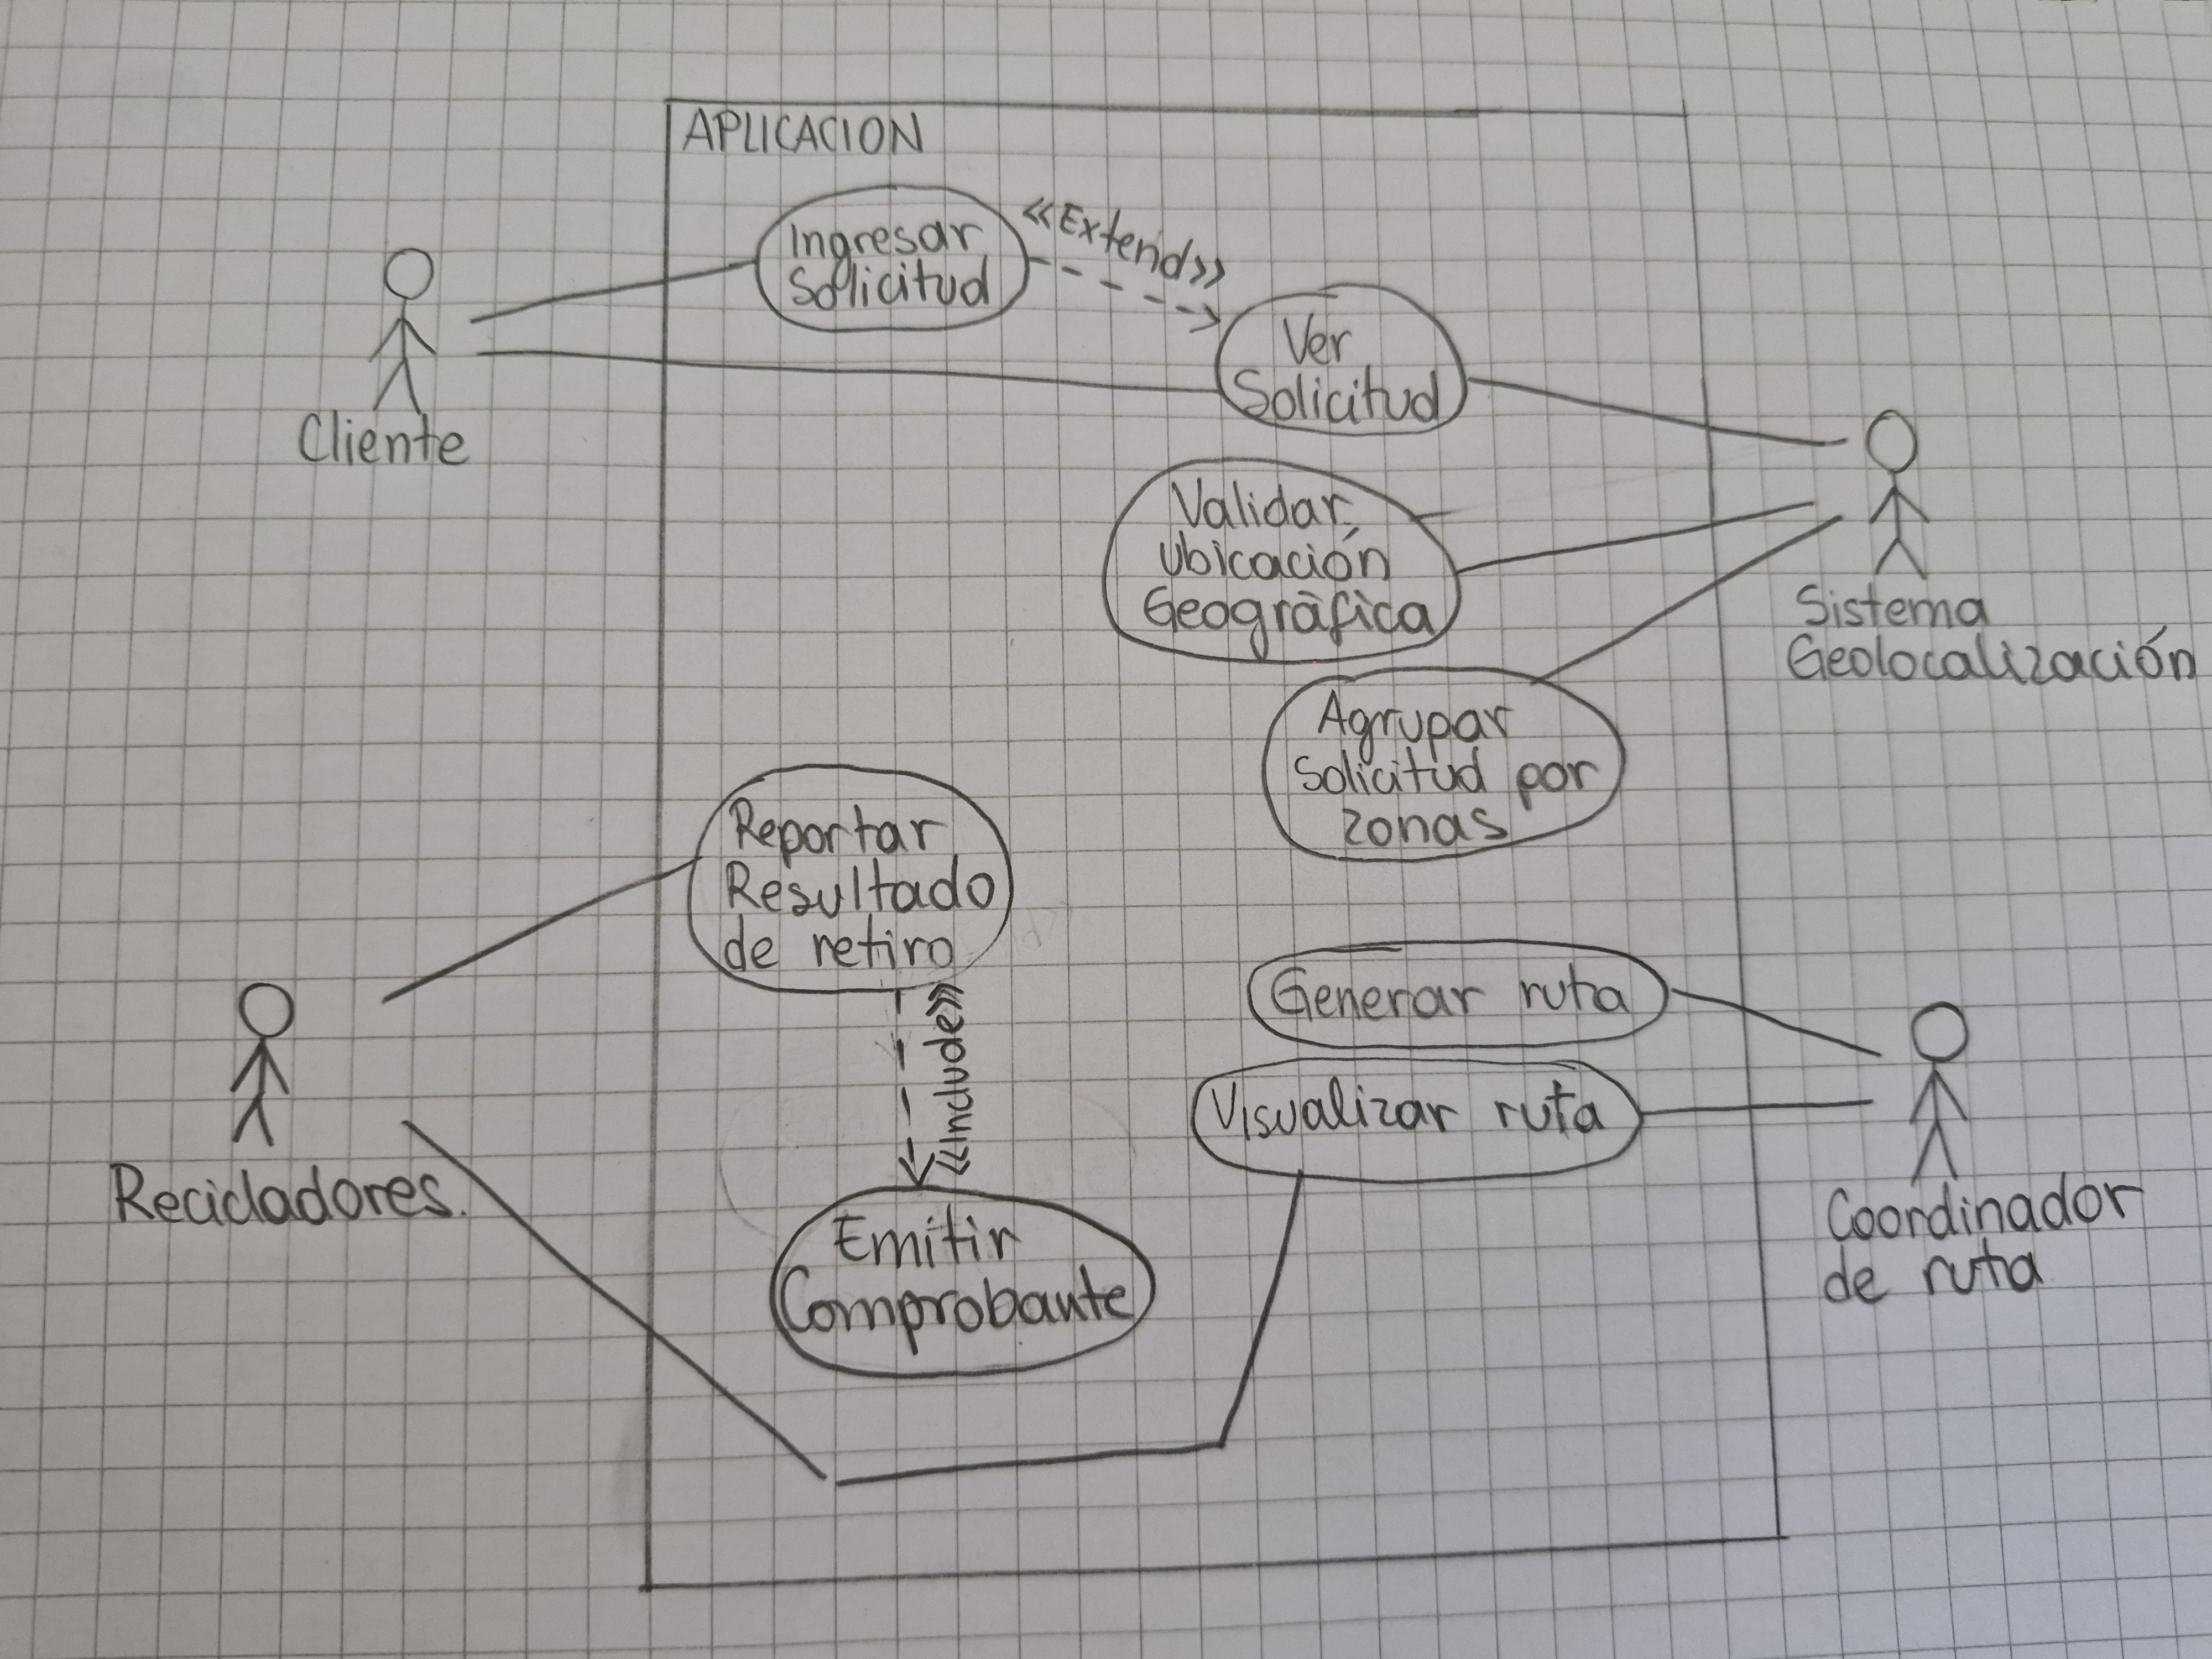 APLICACION
Ingresar
Solicitud
<<Extend>>
Ver
Solicitud
Cliente
Validar
Ubicación
Geográfica
Sistema
Geolocalización
Agrupar
Solicitud por
zonas
Reportar
Resultado
de retiro
<<Include>>
Generar ruta
Visualizar ruta
Recicladores.
Emitir
Comprobante
Coordinador
de ruta